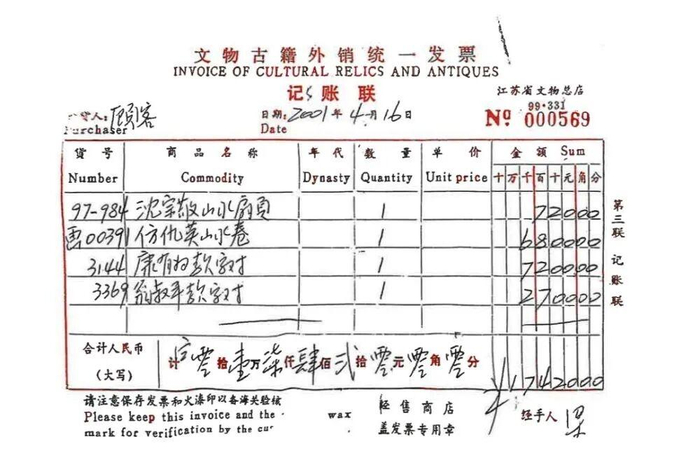 文物古籍外销统一发票
INVOICE OF CULTURAL RELICS AND ANTIQUES
记账联
江苏省文物总店
货人: 顾客 日期: 2001年4月16日 99·331
Purchaser Date № 000569
货号 商品名称 年代 数量 单价 金额 Sum
Number Commodity Dynasty Quantity Unit price 十万千百十元角分
97-984 沈宗敬山水扇页 1 72000
00391 仿仇英山水卷 1 680000
3144 康有为款字对 1 720000
3369 翁叔平款字对 1 270000
合计人民币 计零拾壹万柒仟肆佰贰拾零元零角零分
(大写) ¥1742000
第三联 记账联
请注意保存发票和火漆印以备海关验核 经售商店 经手人 梁
Please keep this invoice and the wax 盖发票专用章
mark for verification by the cus